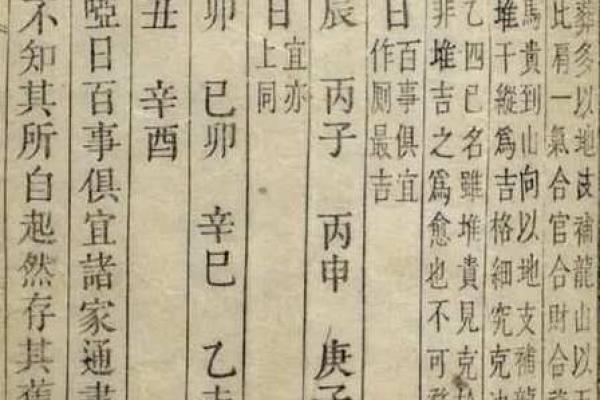 葬多以地支補龍山以
比肩一氣合官合財合
馬貴到山向以地支補龍
堆干縱爲吉格細究克
乙四巳名雖堆貴見克
非堆吉之爲愈也不可
日
百事俱宜
作厠最吉
辰 丙子 丙申 庚子
日
宜亦
上同
卯 己卯 辛巳 乙未
丑 辛酉
啞日百事俱宜諸家通書
不知其所自起然存其舊